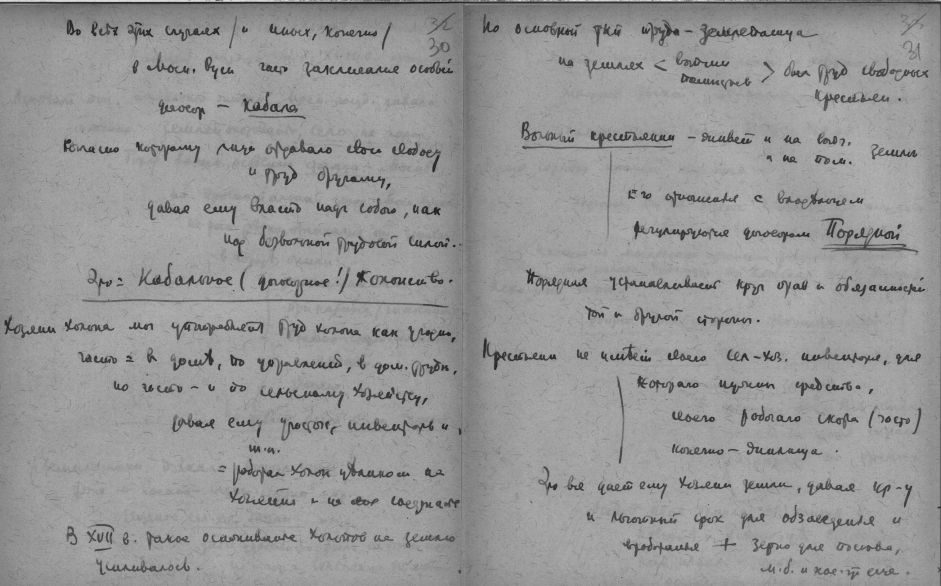 30
Во всех этих случаях / и иных, конечно /
в Моск. Руси часто заключание особый
договор – Кабала
согласно которому лицо отдавало свою свободу
и труд другому,
давая ему власть над собою, как
над безвольной трудовой силой.
Это = Кабальное (договорное!) Холопство.
Хозяин холопа мог употреблять труд холопа как угодно,
часто = в домѣ, по управлений, в дом. трудѣ,
но часто – и по сельскому хозяйству,
давая ему участок, инвентарь и
т.п.
= работал холоп целиком на
хозяина и на
В XVII в. такое осаживание холопов на землю
усиливалось.
31
Но основной тип труда – земледельца
на землях < вотчин поместьев > был труд свободных
крестьян.
Вольный крестьянин – живет и на вотч. земле
и на пом.
Его отношения с владельцем
регулируются договором Порядной
Порядная устанавливает круг прав и обязанностей
той и другой стороны.
Крестьянин не имѣет своего сел-хоз. инвентаря, для
которого нужны средства,
своего рабочего скота (часто)
конечно – жилища.
Это все дает ему хозяин земли, давая кр-у
и льготный срок для обзаведения и
+ зерно для посева,
м.б. и кое-что еще.